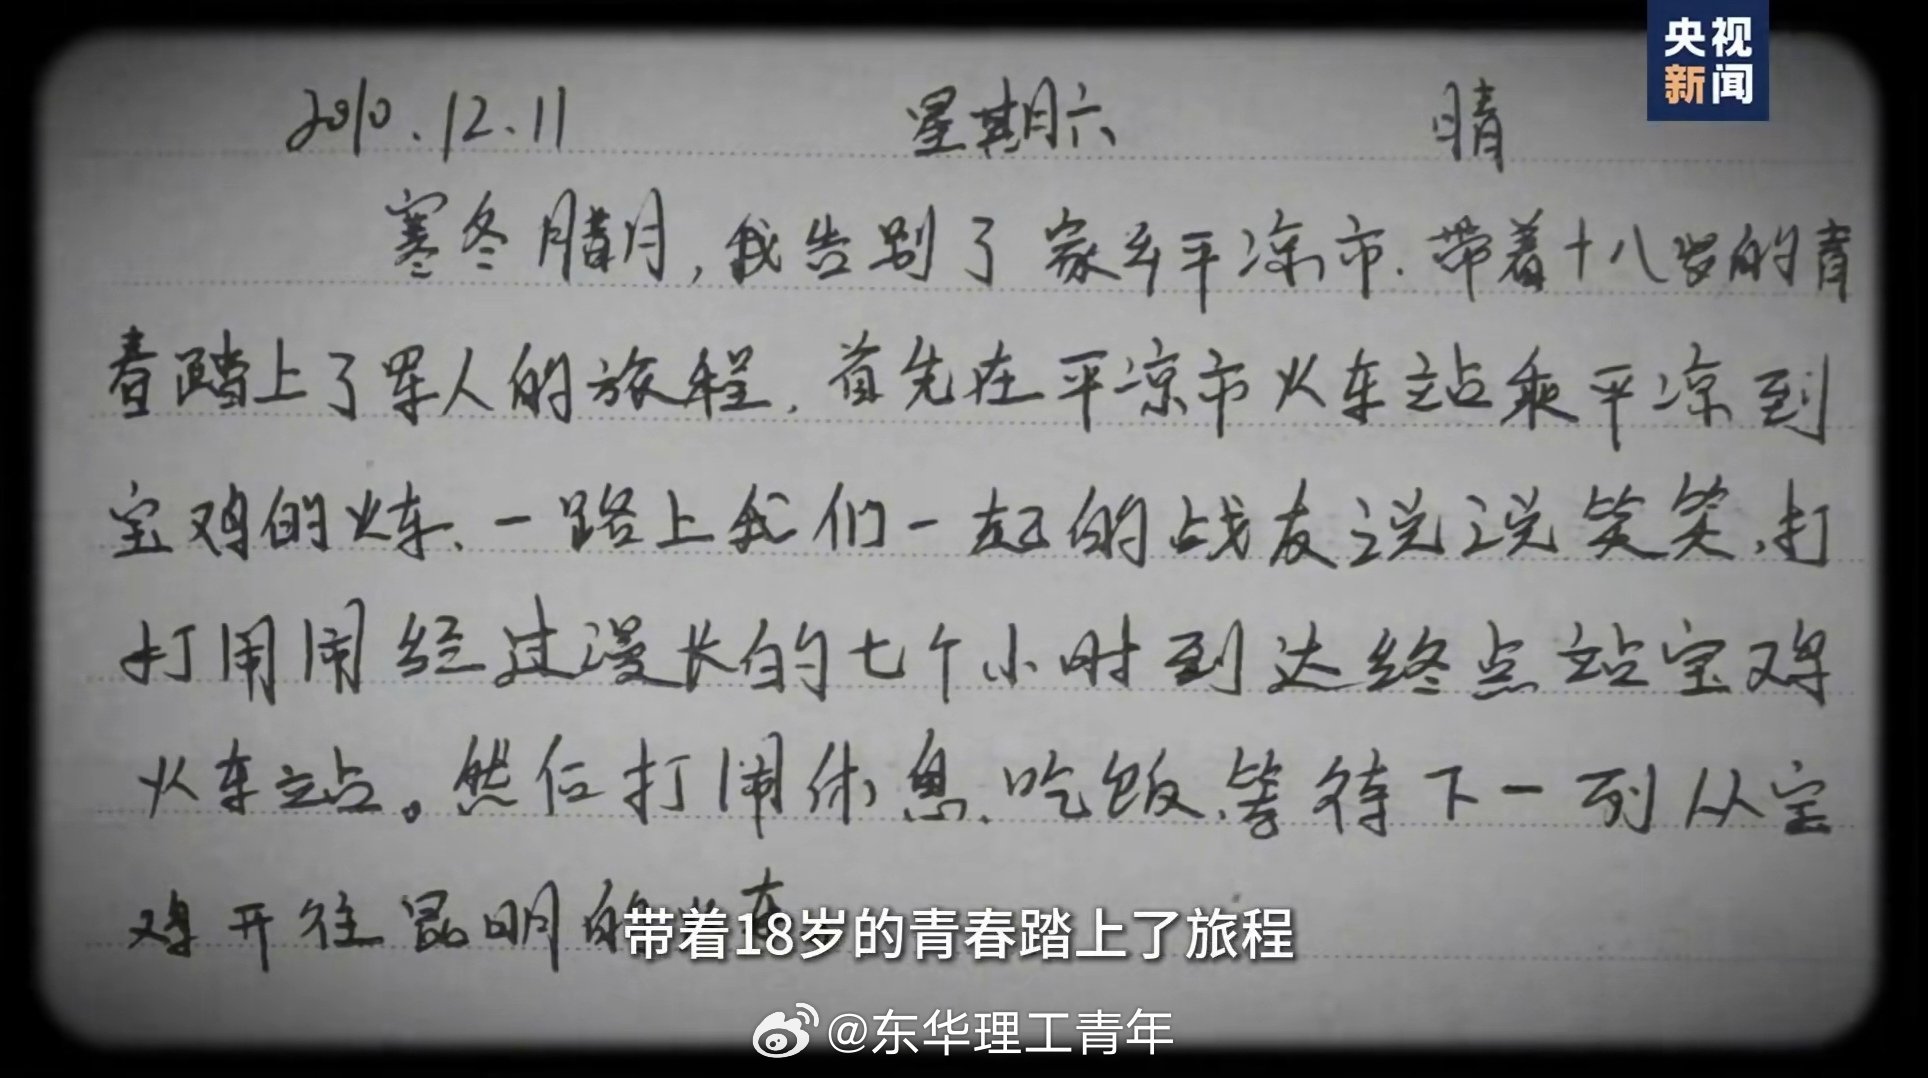 央视
新闻
2010.12.11 星期六 晴
寒冬腊月,我告别了家乡平凉市.带着十八岁的青
春踏上了军人的旅程.首先在平凉市火车站乘平凉到
宝鸡的火车、一路上我们一起的战友说说笑笑,打
打闹闹经过漫长的七个小时到达终点站宝鸡
火车站。然后打闹休息、吃饭,等待下一列从宝
鸡开往昆明的火车
带着18岁的青春踏上了旅程
@东华理工青年